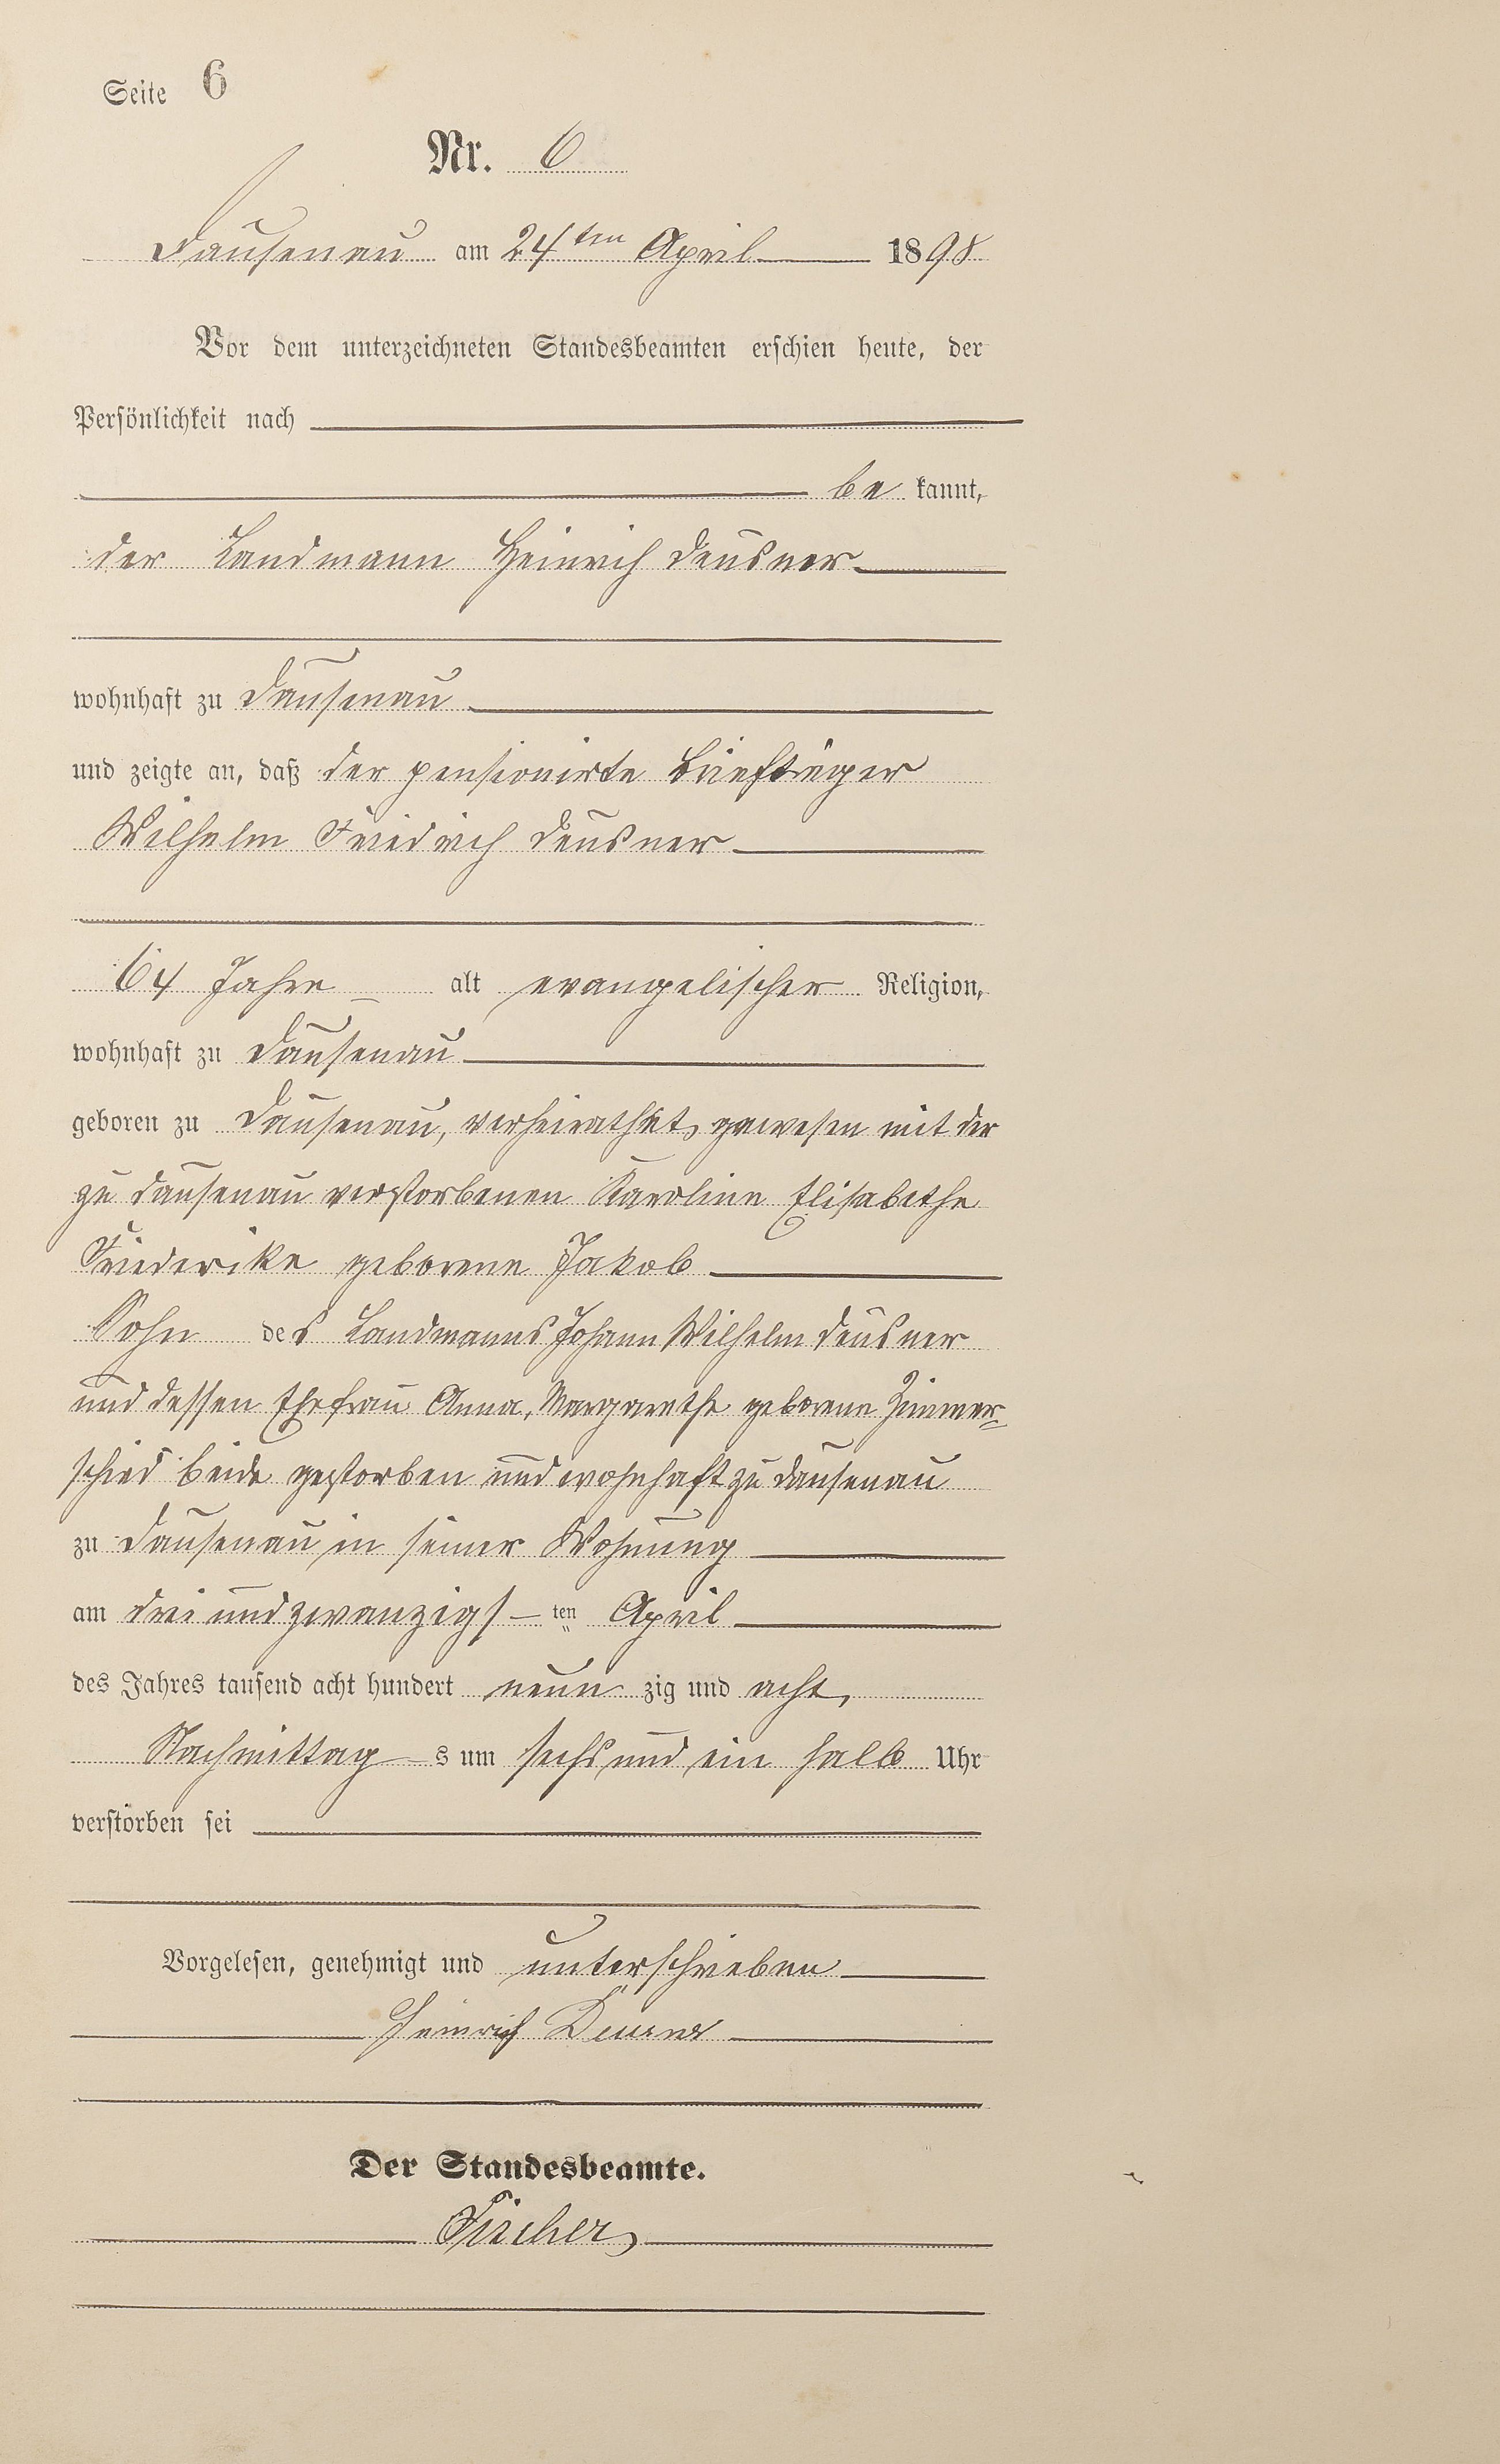 Seite 6
Nr. 6
Dausenau am 24ten April 1898
Vor dem unterzeichneten Standesbeamten erschien heute, der
Persönlichkeit nach
be kannt,
der Landmann Heinrich Deusner
wohnhaft zu Dausenau
und zeigte an, daß der pensionirte Briefträger
Wilhelm Friedrich Deusner
64 Jahre alt evangelischer Religion,
wohnhaft zu Dausenau
geboren zu Dausenau, verheirathet gewesen mit der
zu Dausenau verstorbenen Karoline Elisabethe
Friederike geborene Jakob
Sohn des Landmanns Johann Wilhelm Deusner
und dessen Ehefrau Anna, Margarethe geborene Zimmer=
schied beide gestorben und wohnhaft zu Dausenau
zu Dausenau in seiner Wohnung
am drei und zwanzigs-ten April
des Jahres tausend acht hundert neun zig und acht,
Nachmittag s um sechs und ein halb Uhr
verstorben sei
Vorgelesen, genehmigt und unterschrieben
Heinrich Deusner
Der Standesbeamte.
Fischer